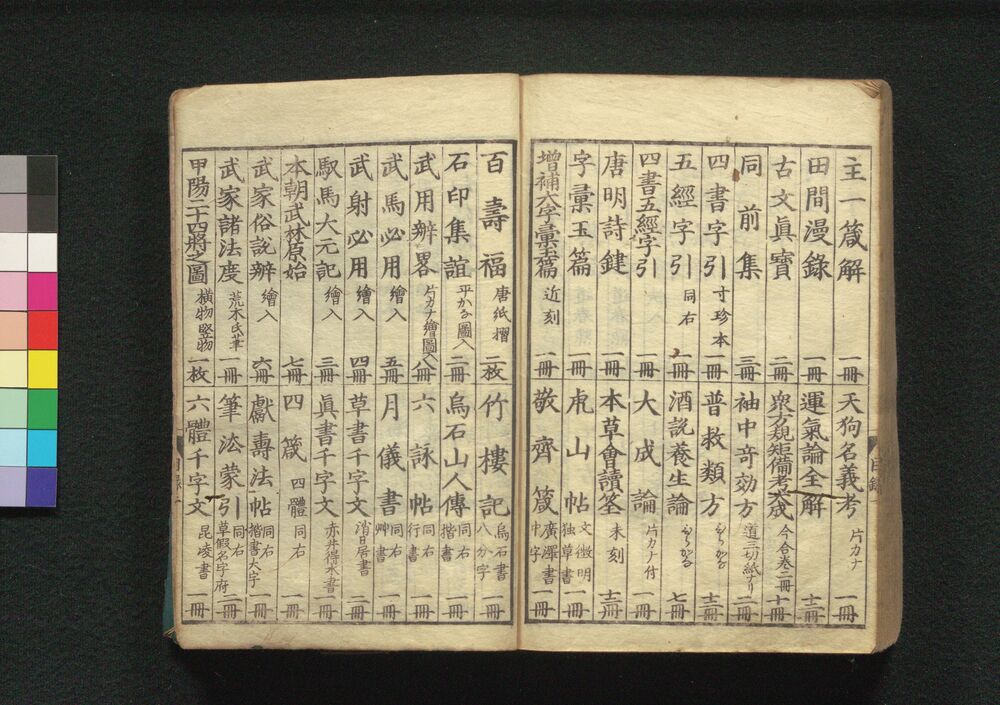 主一箴解 一冊
田間漫錄 一冊
古文眞寶 二冊
同前集 三冊
四書字引 寸珍本 一冊
五經字引 同右 一冊
四書五經字引 一冊
唐明詩鍵 一冊
字彙玉篇 近刻 一冊
增補大字彙玉篇 一冊
天狗名義考 片カナ 一冊
運氣論全解 三冊
衆方規矩備考大成 今合卷二冊 十冊
袖中奇効方 道三切紙ナリ 二冊
普救類方 ひらかな 十二冊
酒說養生論 ひらかな 七冊
大成論 片カナ付 一冊
本草會讀筌 未刻 十二冊
虎山帖 文徵明 独草書 一冊
敬齊箴 廣澤書 中字 一冊
百壽福 唐紙摺 二枚
石印集誼 平かな圖入 二冊
武用辨畧 片カナ繪圖入 八冊
武馬必用 繪入 五冊
武射必用 繪入 四冊
馭馬大元記 繪入 三冊
本朝武林原始 七冊
武家俗說辨 繪入 六冊
武家諸法度 荒木氏筆 一冊
甲陽二十四將之圖 橫物竪物 一枚
竹樓記 烏石書 八分字 一冊
烏石山人傳 同右 楷書 一冊
六詠帖 同右 行書 一冊
月儀書 同右 艸書 一冊
草書千字文 消日居書 二冊
眞書千字文 赤井得水書 一冊
四箴 四體 同右 一冊
獻壽法帖 同右 楷書大字 一冊
筆法蒙引 同右 草假名字府 二冊
六體千字文 昆崚書 一冊